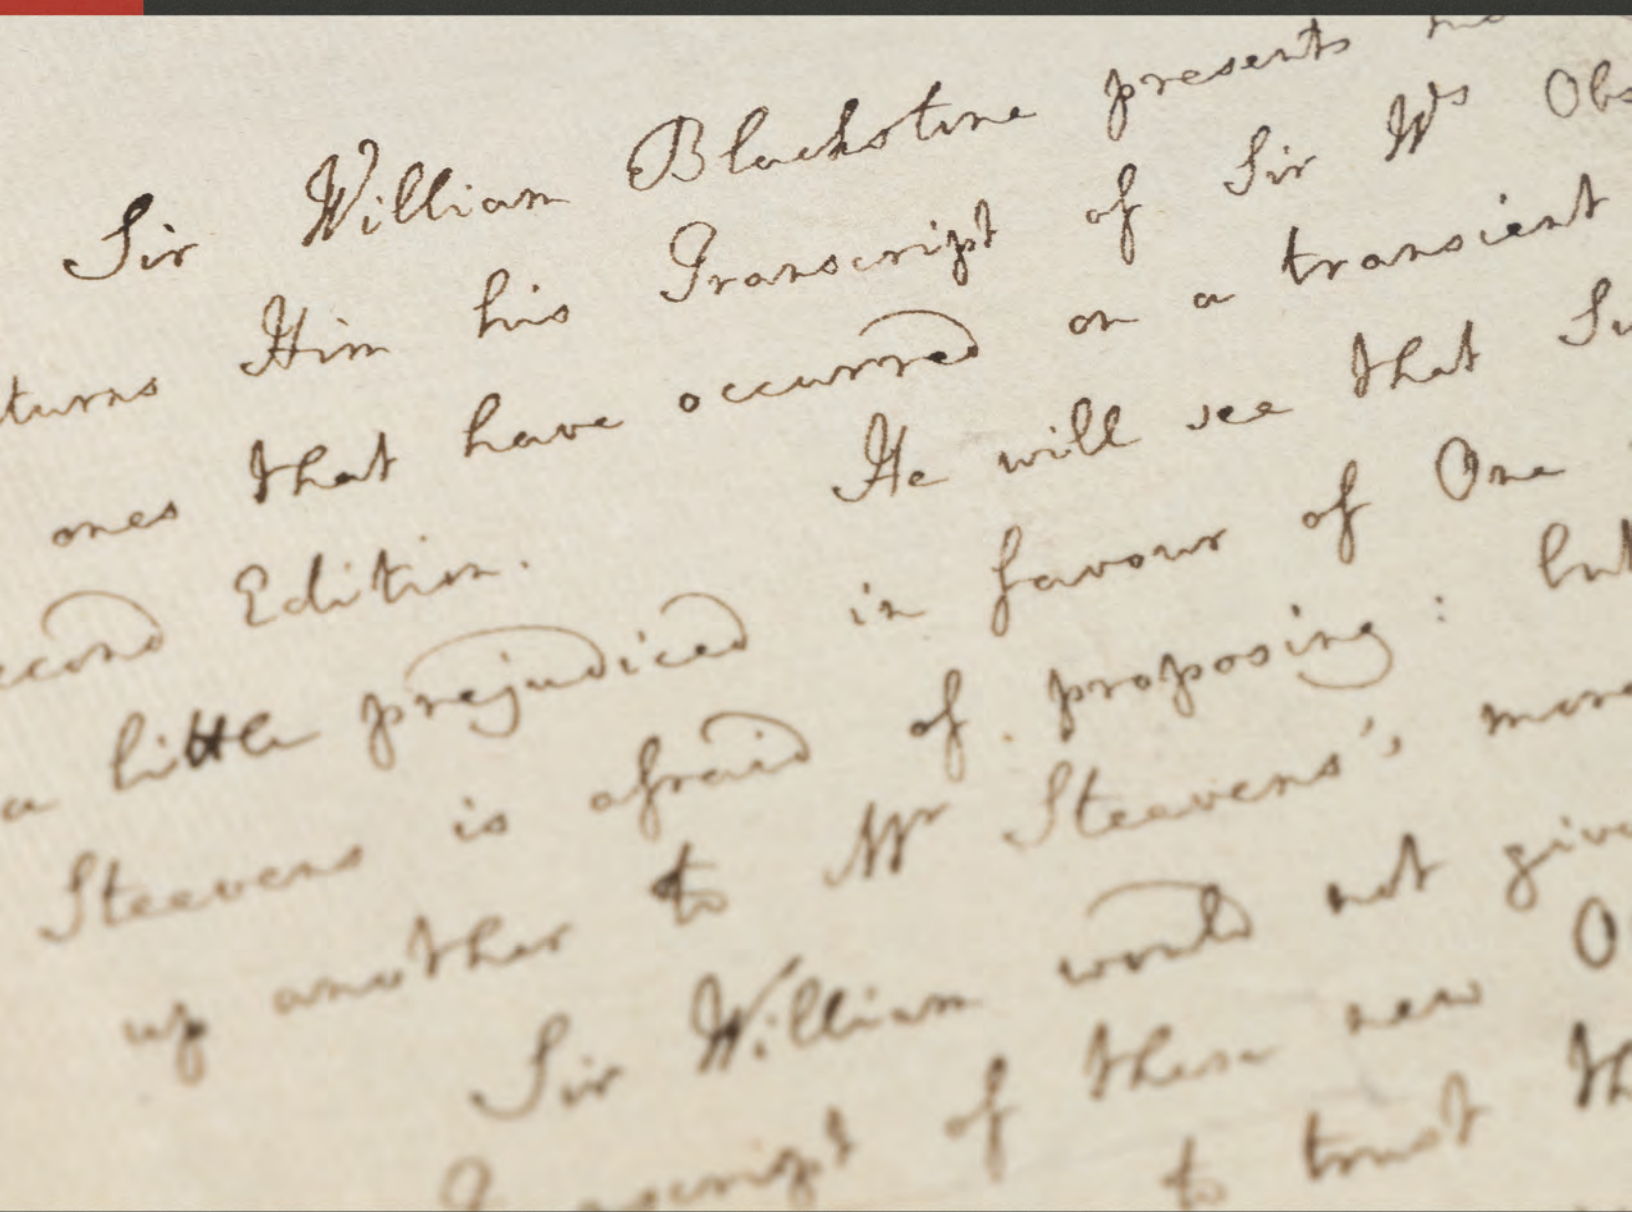 Sir William Blackstone presents
turns Him his Transcript of Sir Ws Obs
ones that have occurred on a transient
econd Edition. He will see that Si
a little prejudiced in favour of One
Steevens is afraid of proposing: but
up another to Mr Steevens's more
Sir William would not give
Transcript of these new O
to trust th